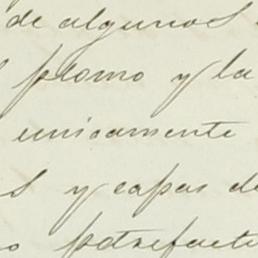 de algunos
plomo y la
unicamente
y capas de